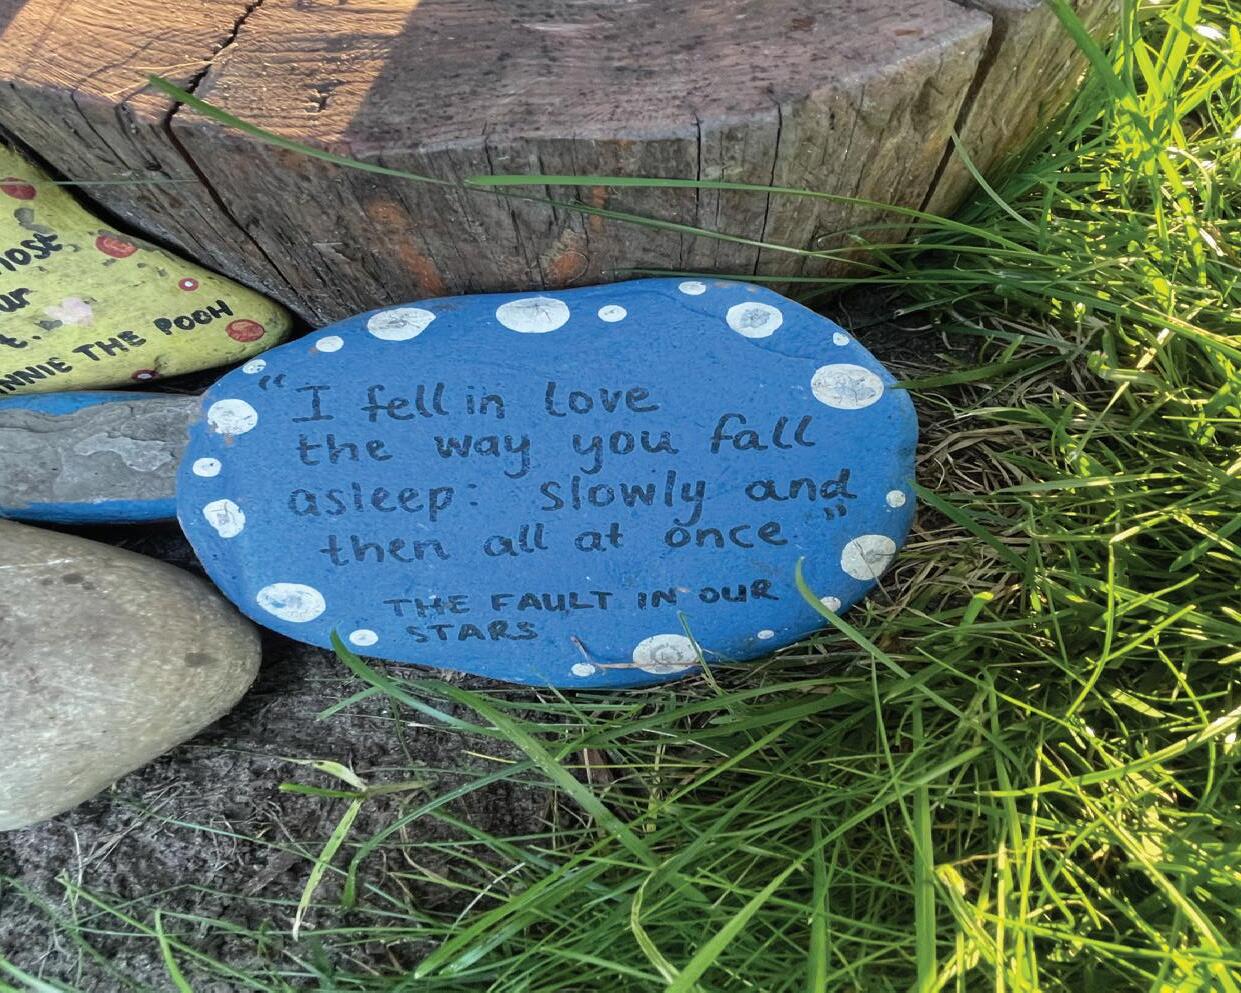 most
ur
t.
NNIE THE POOH
"I fell in love
the way you fall
asleep: slowly and
then all at once."
THE FAULT IN OUR
STARS